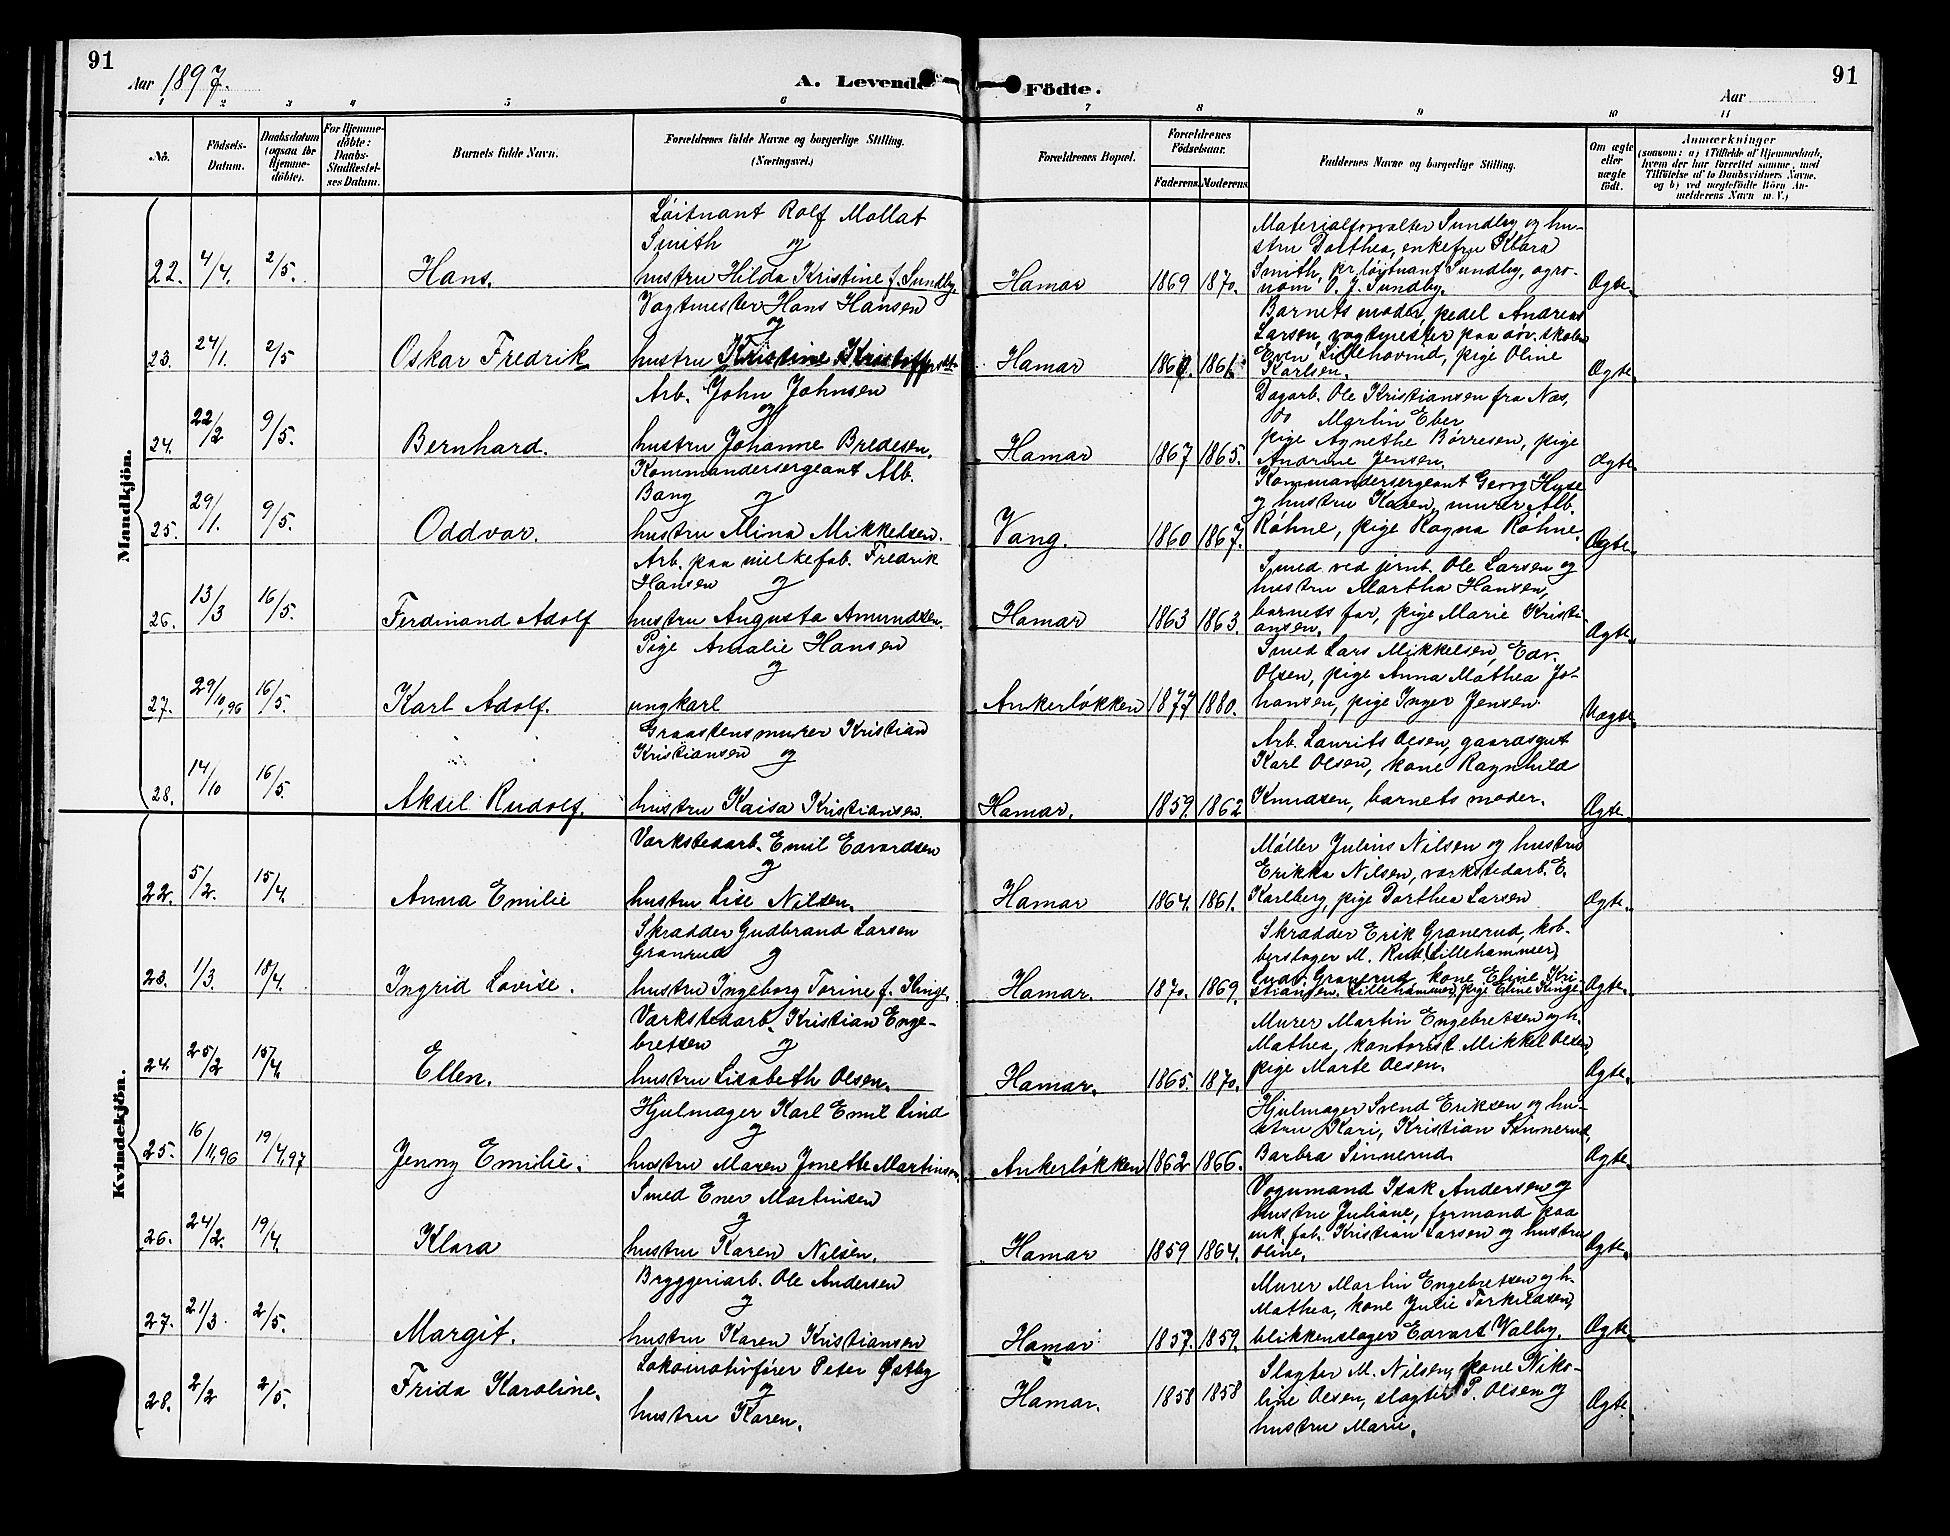 91
Aar 1897.
A. Levende
Födte.
91
Aar
1 2 3 4 5 6 7 8 9 10 11
No.
Födsels-
Datum.
Daabsdatum
(ogsaa for
Hjemme-
döbte).
For Hjemme-
döbte:
Daabs-
Stadfæstel-
ses Datum.
Barnets fulde Navn.
Forældrenes fulde Navne og borgerlige Stilling.
(Næringsvei.)
Forældrenes Bopæl.
Forældrenes
Födselsaar.
Faderens. Moderens.
Faddernes Navne og borgerlige Stilling.
Om ægte
eller
uægte
födt.
Anmærkninger
(saasom: a) i Tilfælde af Hjemmedaab,
hvem der har forrettet samme, med
Tilföielse af to Daabsvidners Navne.
og b) ved uægtefödte Börn An-
melderens Navn m. V.)
Mandkjön.
22. 4/4. 2/5. Hans.
Löitnant Rolf Mollat
Smith og
hustru Hilda Kristine f. Sundby.
Hamar 1869 1870.
Materialforvalter Sundby og hu-
stru Dorthea, enkefru Klara
Smith, pr. löjtnant Sundby, agro-
nom O. J. Sundby.
Ægte.
23. 24/1. 2/5 Oskar Fredrik
Vagtmester Hans Hansen
og
hustru Kristine
Hamar
Barnets moder, pedel Andreas
Larsen, vagtmester paa
Even Lillehovind, pige Oline
Karlsen.
Ægte.
24. 22/2 9/5. Bernhard.
Arb. John Johnsen
og
hustru Johanne Bredesen.
Hamar 1867 1865.
Dagarb. Ole Kristiansen fra Næs,
do Martin Eber
pige Agnethe Börresen, pige
Andrine Jensen.
Ægte.
25. 29/1. 9/5. Oddvar.
Kommandersergeant Alb.
Bang og
hustru Mina Mikkelsen.
Vang. 1860 1867.
Kommandersergeant Georg Huse
og hustru Karen, murer Alb.
Röhne, pige Ragna Röhne.
Ægte.
26. 13/3 16/5. Ferdinand Adolf
Arb. paa milkefab. Fredrik
Hansen og
hustru Augusta Amundsen.
Hamar 1863 1863.
Smed ved jernb. Ole Larsen og
hustru Martha Hansen,
barnets far, pige Marie Kristi-
ansen.
Ægte.
27. 29/10,96 16/5. Karl Adolf.
Pige Amalie Hansen
og
ungkarl
Ankerlökken 1877 1880.
Smed Lars Mikkelsen, Edv.
Olsen, pige Anna Mathea Jo-
hansen, pige Inger Jensen.
Uægte.
28. 14/10 16/5. Aksel Rudolf.
Graastensmurer Kristian
Kristiansen og
hustru Kaisa Kristiansen.
Hamar. 1859. 1862
Arb. Laurits Olsen, gaardsgut
Karl Olsen, kone Ragnhild
Knudsen, barnets moder.
Ægte.
Kvindekjön.
22. 5/2. 15/4. Anna Emilie
Værkstedarb. Emil Edvardsen
og
hustru Lise Nilsen.
Hamar 1864. 1861.
Möller Julius Nilsen og hustru
Erikka Nilsen, værkstedarb. E.
Karlberg, pige Dorthea Larsen
Ægte.
23. 1/3. 18/4. Ingrid Lovise.
Skrædder Gudbrand Larsen
Granrud og
hustru Ingeborg Torine f.
Hamar. 1870. 1869.
Skrædder Erik Granerud, kob-
berslager M. Rud (Lillehammer)
Ludv. Granerud, kone Eline Kri-
stiansen, Lillehammer, pige Eline
Ægte.
24. 25/2 15/4. Ellen.
Værkstedarb. Kristian Enge-
bretsen og
hustru Lisabeth Olsen.
Hamar. 1865. 1870.
Murer Martin Engebretsen og h.
Mathea, kontorist Mikkel Olsen,
pige Marte Olsen.
Ægte.
25. 16/11,96 19/4,97 Jenny Emilie.
Hjulmager Karl Emil Lind
og
hustru Maren Jonette Martinsen.
Ankerlökken 1862 1866.
Hjulmager Svend Eriksen og hu-
stru Kari, Kristian Sinnerud,
Barbra Sinnerud.
Ægte.
26. 24/2. 19/4. Klara
Smed Ener Martinsen
og
hustru Karen Nilsen.
Hamar 1859 1864.
Vognmand Isak Andersen og
hustru Juliane, formand paa
mk. fab. Kristian Larsen og hustru
Oline.
Ægte.
27. 21/3. 2/5. Margit.
Bryggeriarb. Ole Andersen
og
hustru Karen Kristiansen
Hamar 1857. 1859.
Murer Martin Engebretsen og h.
Mathea, kone Julie Torkildsen,
blikkenslager Edvart Valby.
Ægte.
28. 2/2 2/5. Frida Karoline.
Lokomotivförer Peter Østby
og
hustru Karen.
Hamar. 1858 1858
Slagter M. Nilsen, kone Niko-
line Olsen, slagter P. Olsen og
hustru Marie.
Ægte.